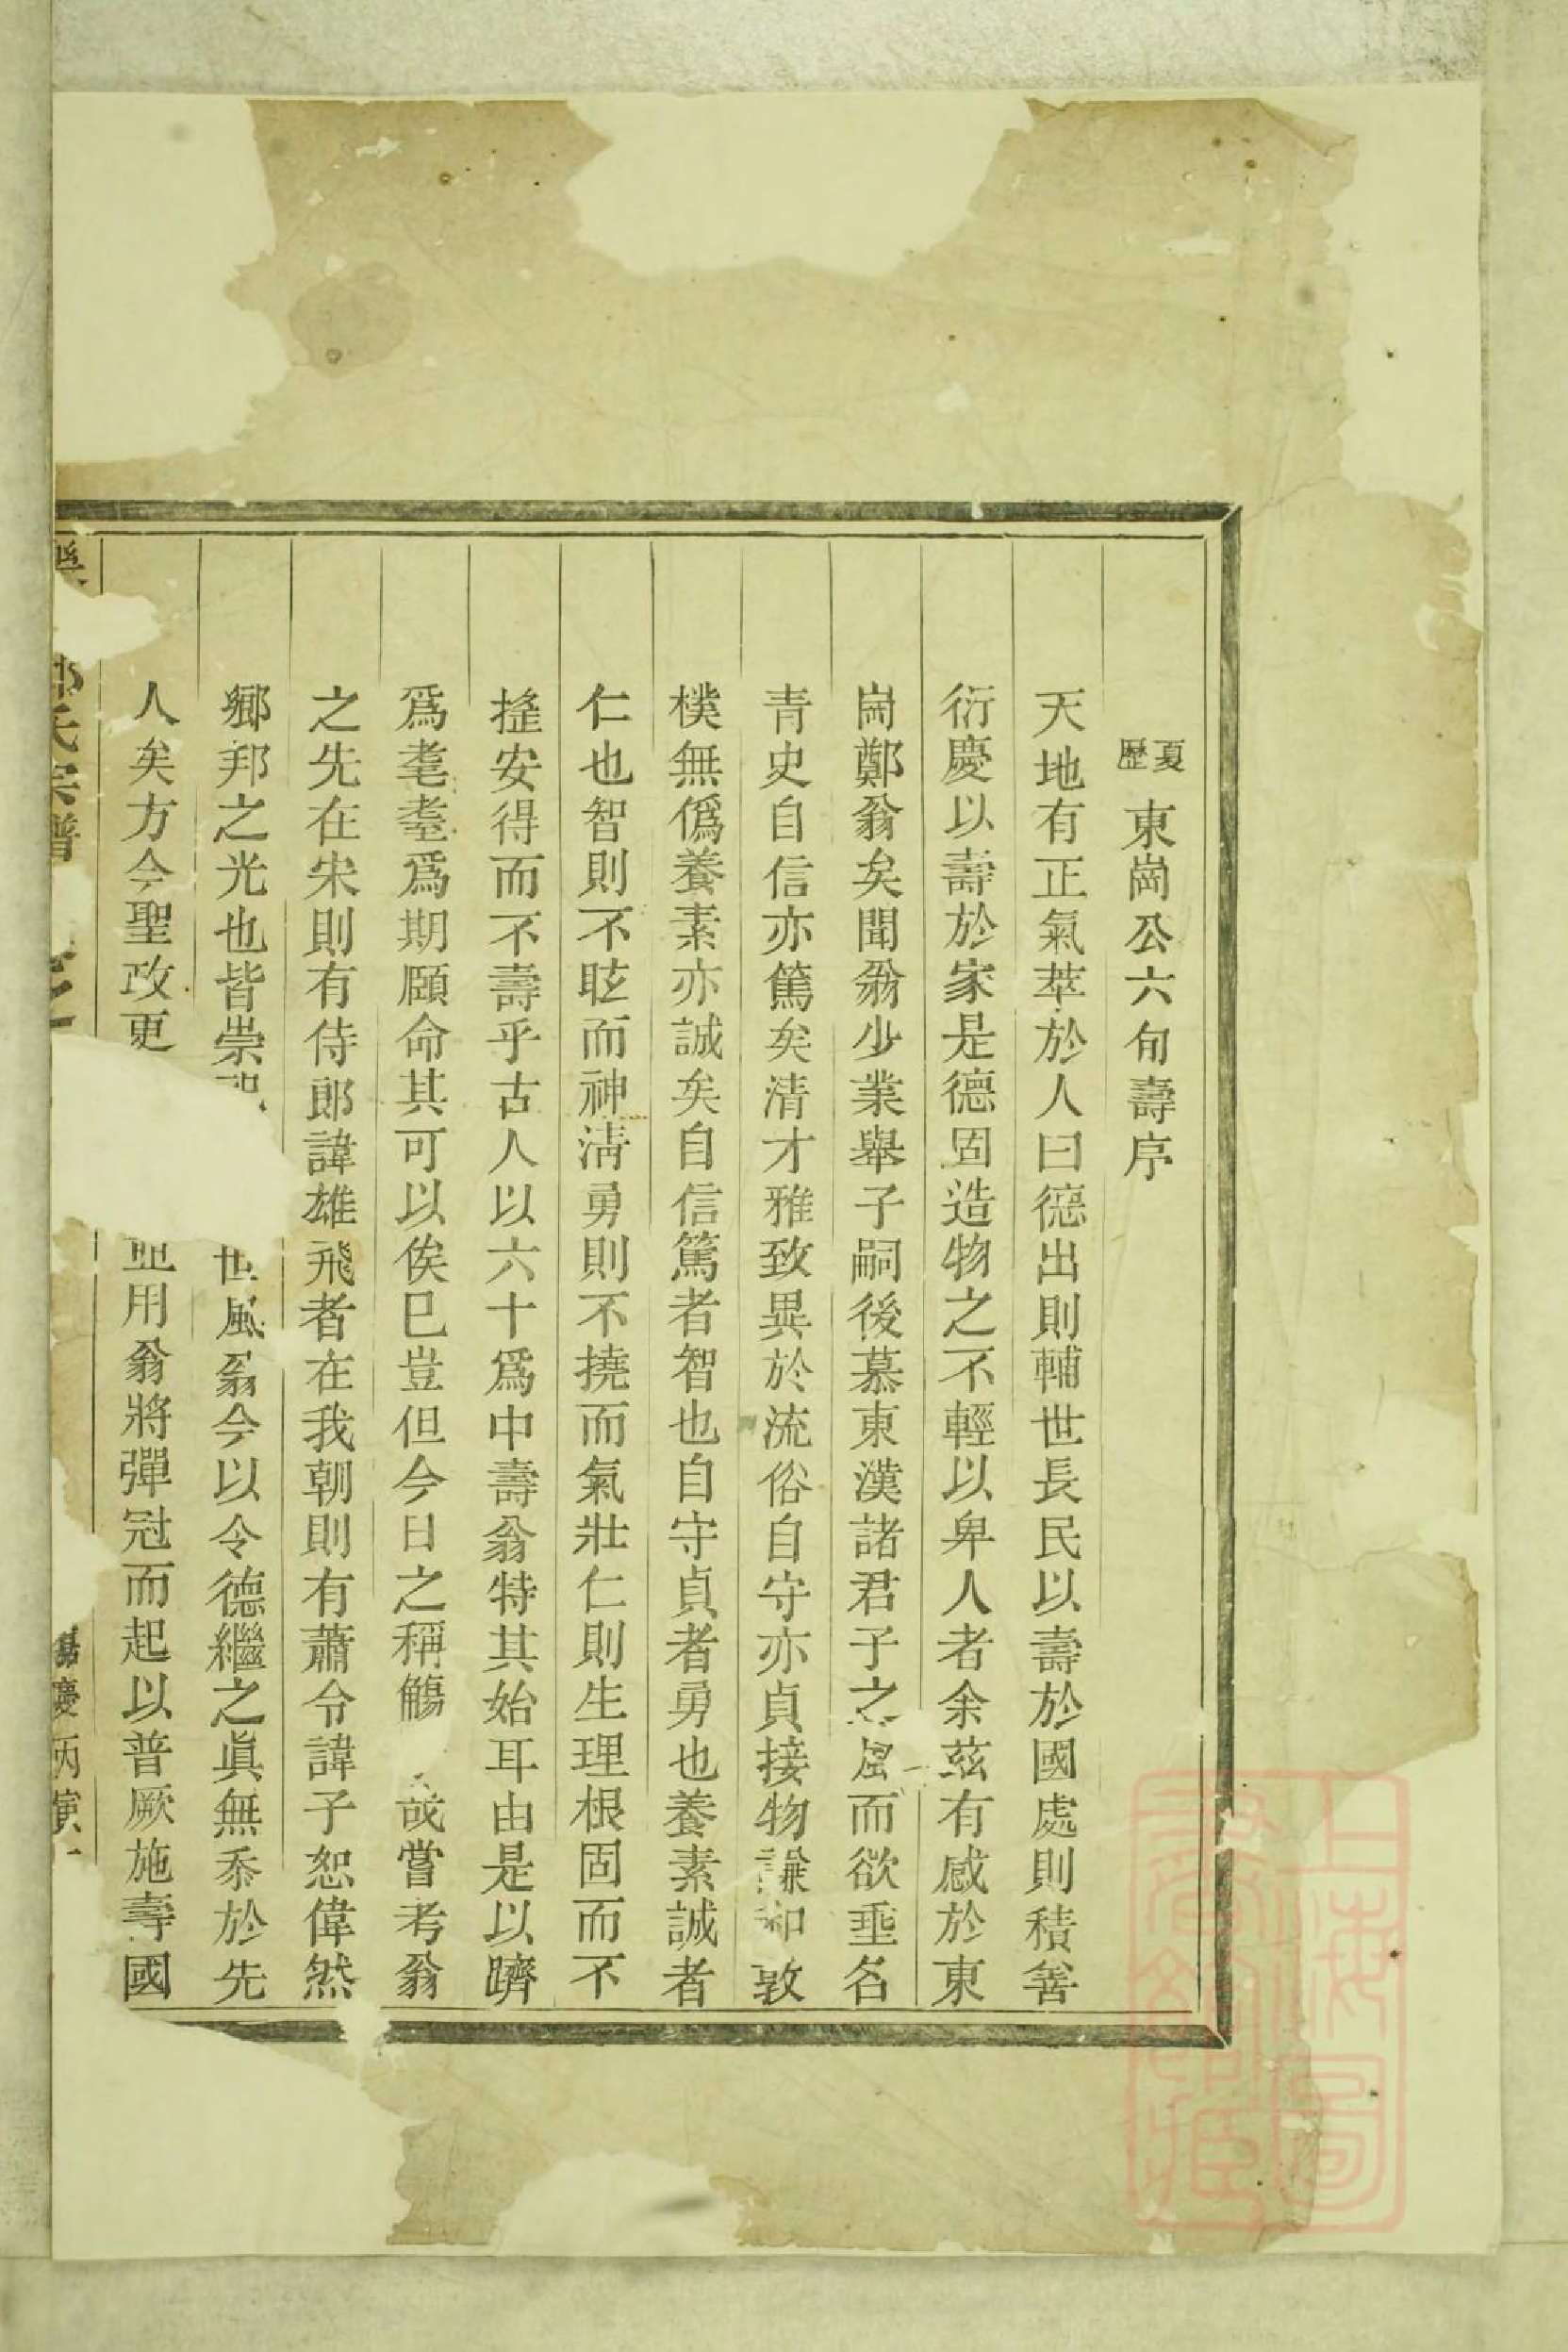 夏歷 東崗公六旬壽序
天地有正氣萃於人曰德出則輔世長民以壽於國處則積善
衍慶以壽於家是德固造物之不輕以畀人者余茲有感於東
崗鄭翁矣聞翁少業舉子嗣後慕東漢諸君子之風而欲垂名
青史自信亦篤矣清才雅致異於流俗自守亦貞接物謙和敦
樸無僞養素亦誠矣自信篤者智也自守貞者勇也養素誠者
仁也智則不眩而神淸勇則不撓而氣壯仁則生理根固而不
搖安得而不壽乎古人以六十爲中壽翁特其始耳由是以躋
爲耄耋爲期頤命其可以俟巳豈但今日之稱觴哉嘗考翁
之先在宋則有侍郎諱雄飛者在我朝則有蕭令諱子恕偉然
鄉邦之光也皆崇世風翁今以令德繼之眞無忝於先
人矣方今聖政更並用翁將彈冠而起以普厥施壽國
氏宗譜 之 慶丙寅
上海圖書館藏